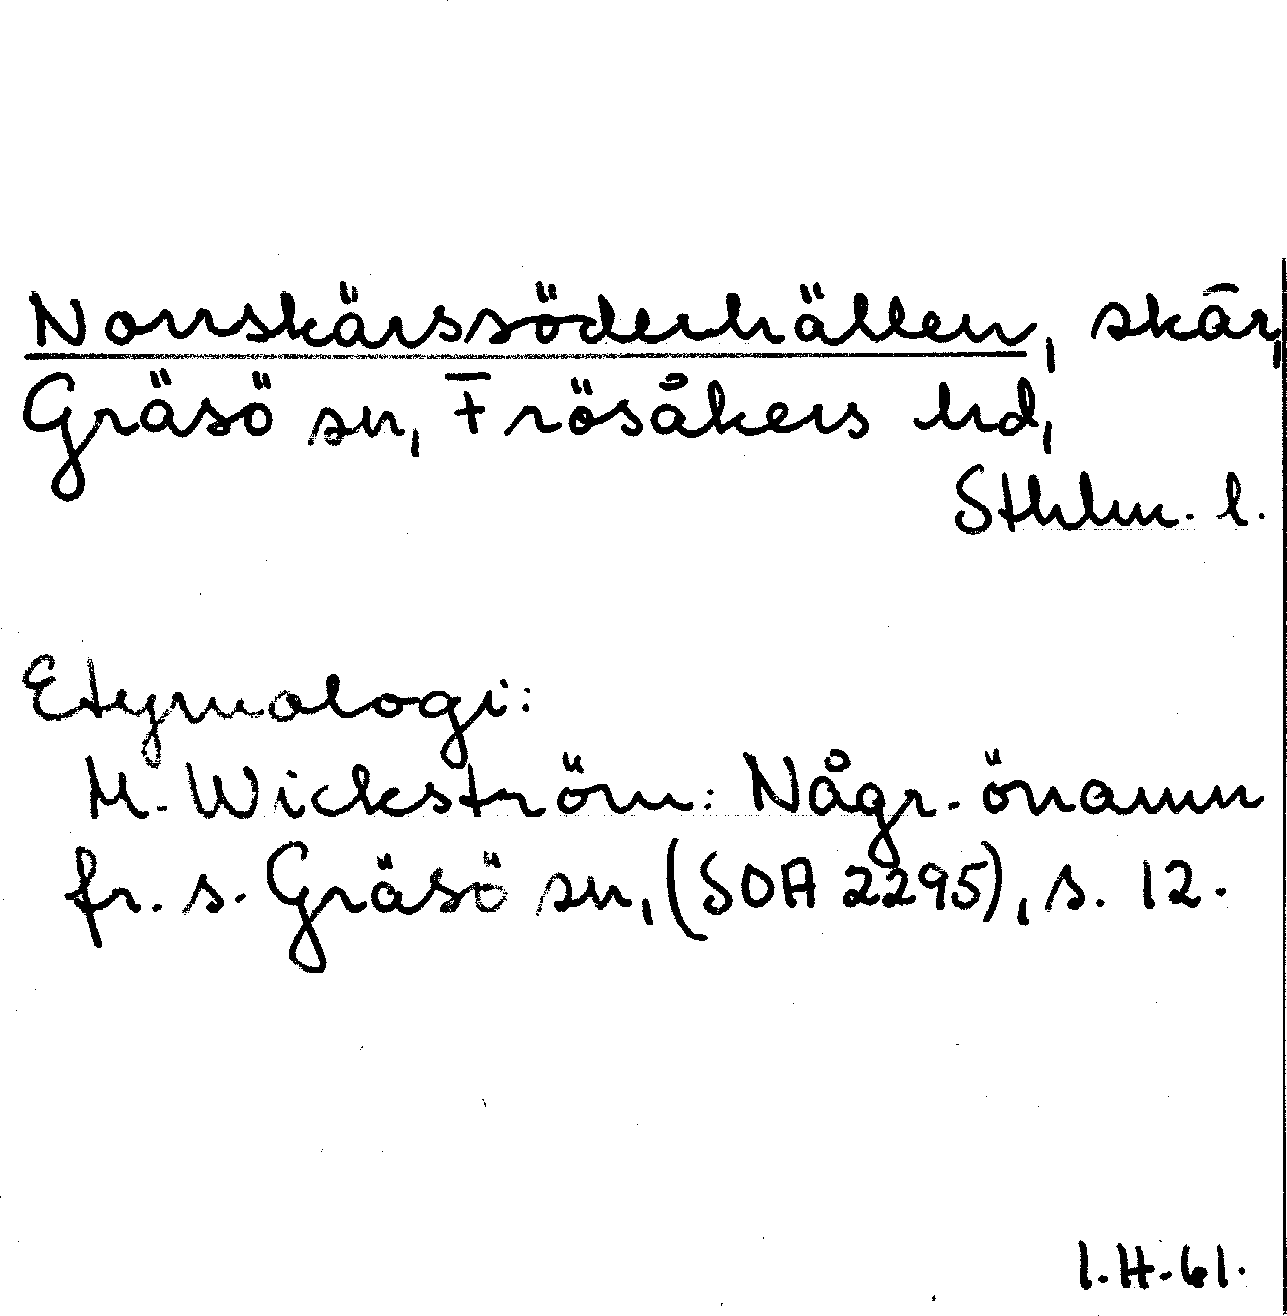 Norrskärssöderhällen, skär,
Gräsö sn, Frösåkers hd,
Sthlm. l.
Etymologi:
M. Wickström: Någr. önamn
fr. s. Gräsö sn, (SOA 2295), s. 12.
I.H.61.